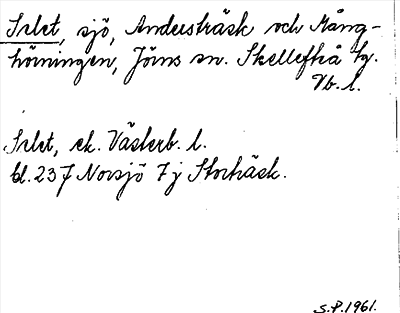 Irlet, sjö, Andersträsk och Mång-
hörningen, Jörns sn. Skellefteå tg.
Vb. l.
Irlet, ek. Västerb. l.
bl. 237 Norsjö 7 j Storträsk.
S.P. 1961.